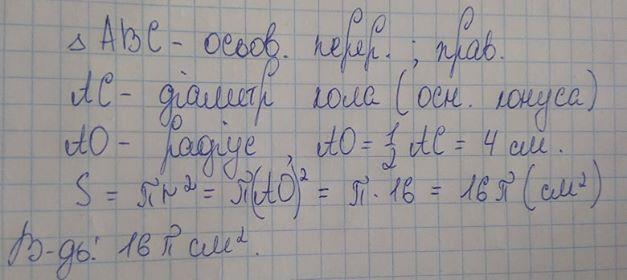 △ ABC - осьов. перер.; прав.
AC - діаметр кола (осн. конуса)
AO - радіус, AO = 1/2 AC = 4 см.
S = πr² = π(AO)² = π · 16 = 16π (см²)
В-дь: 16π см².